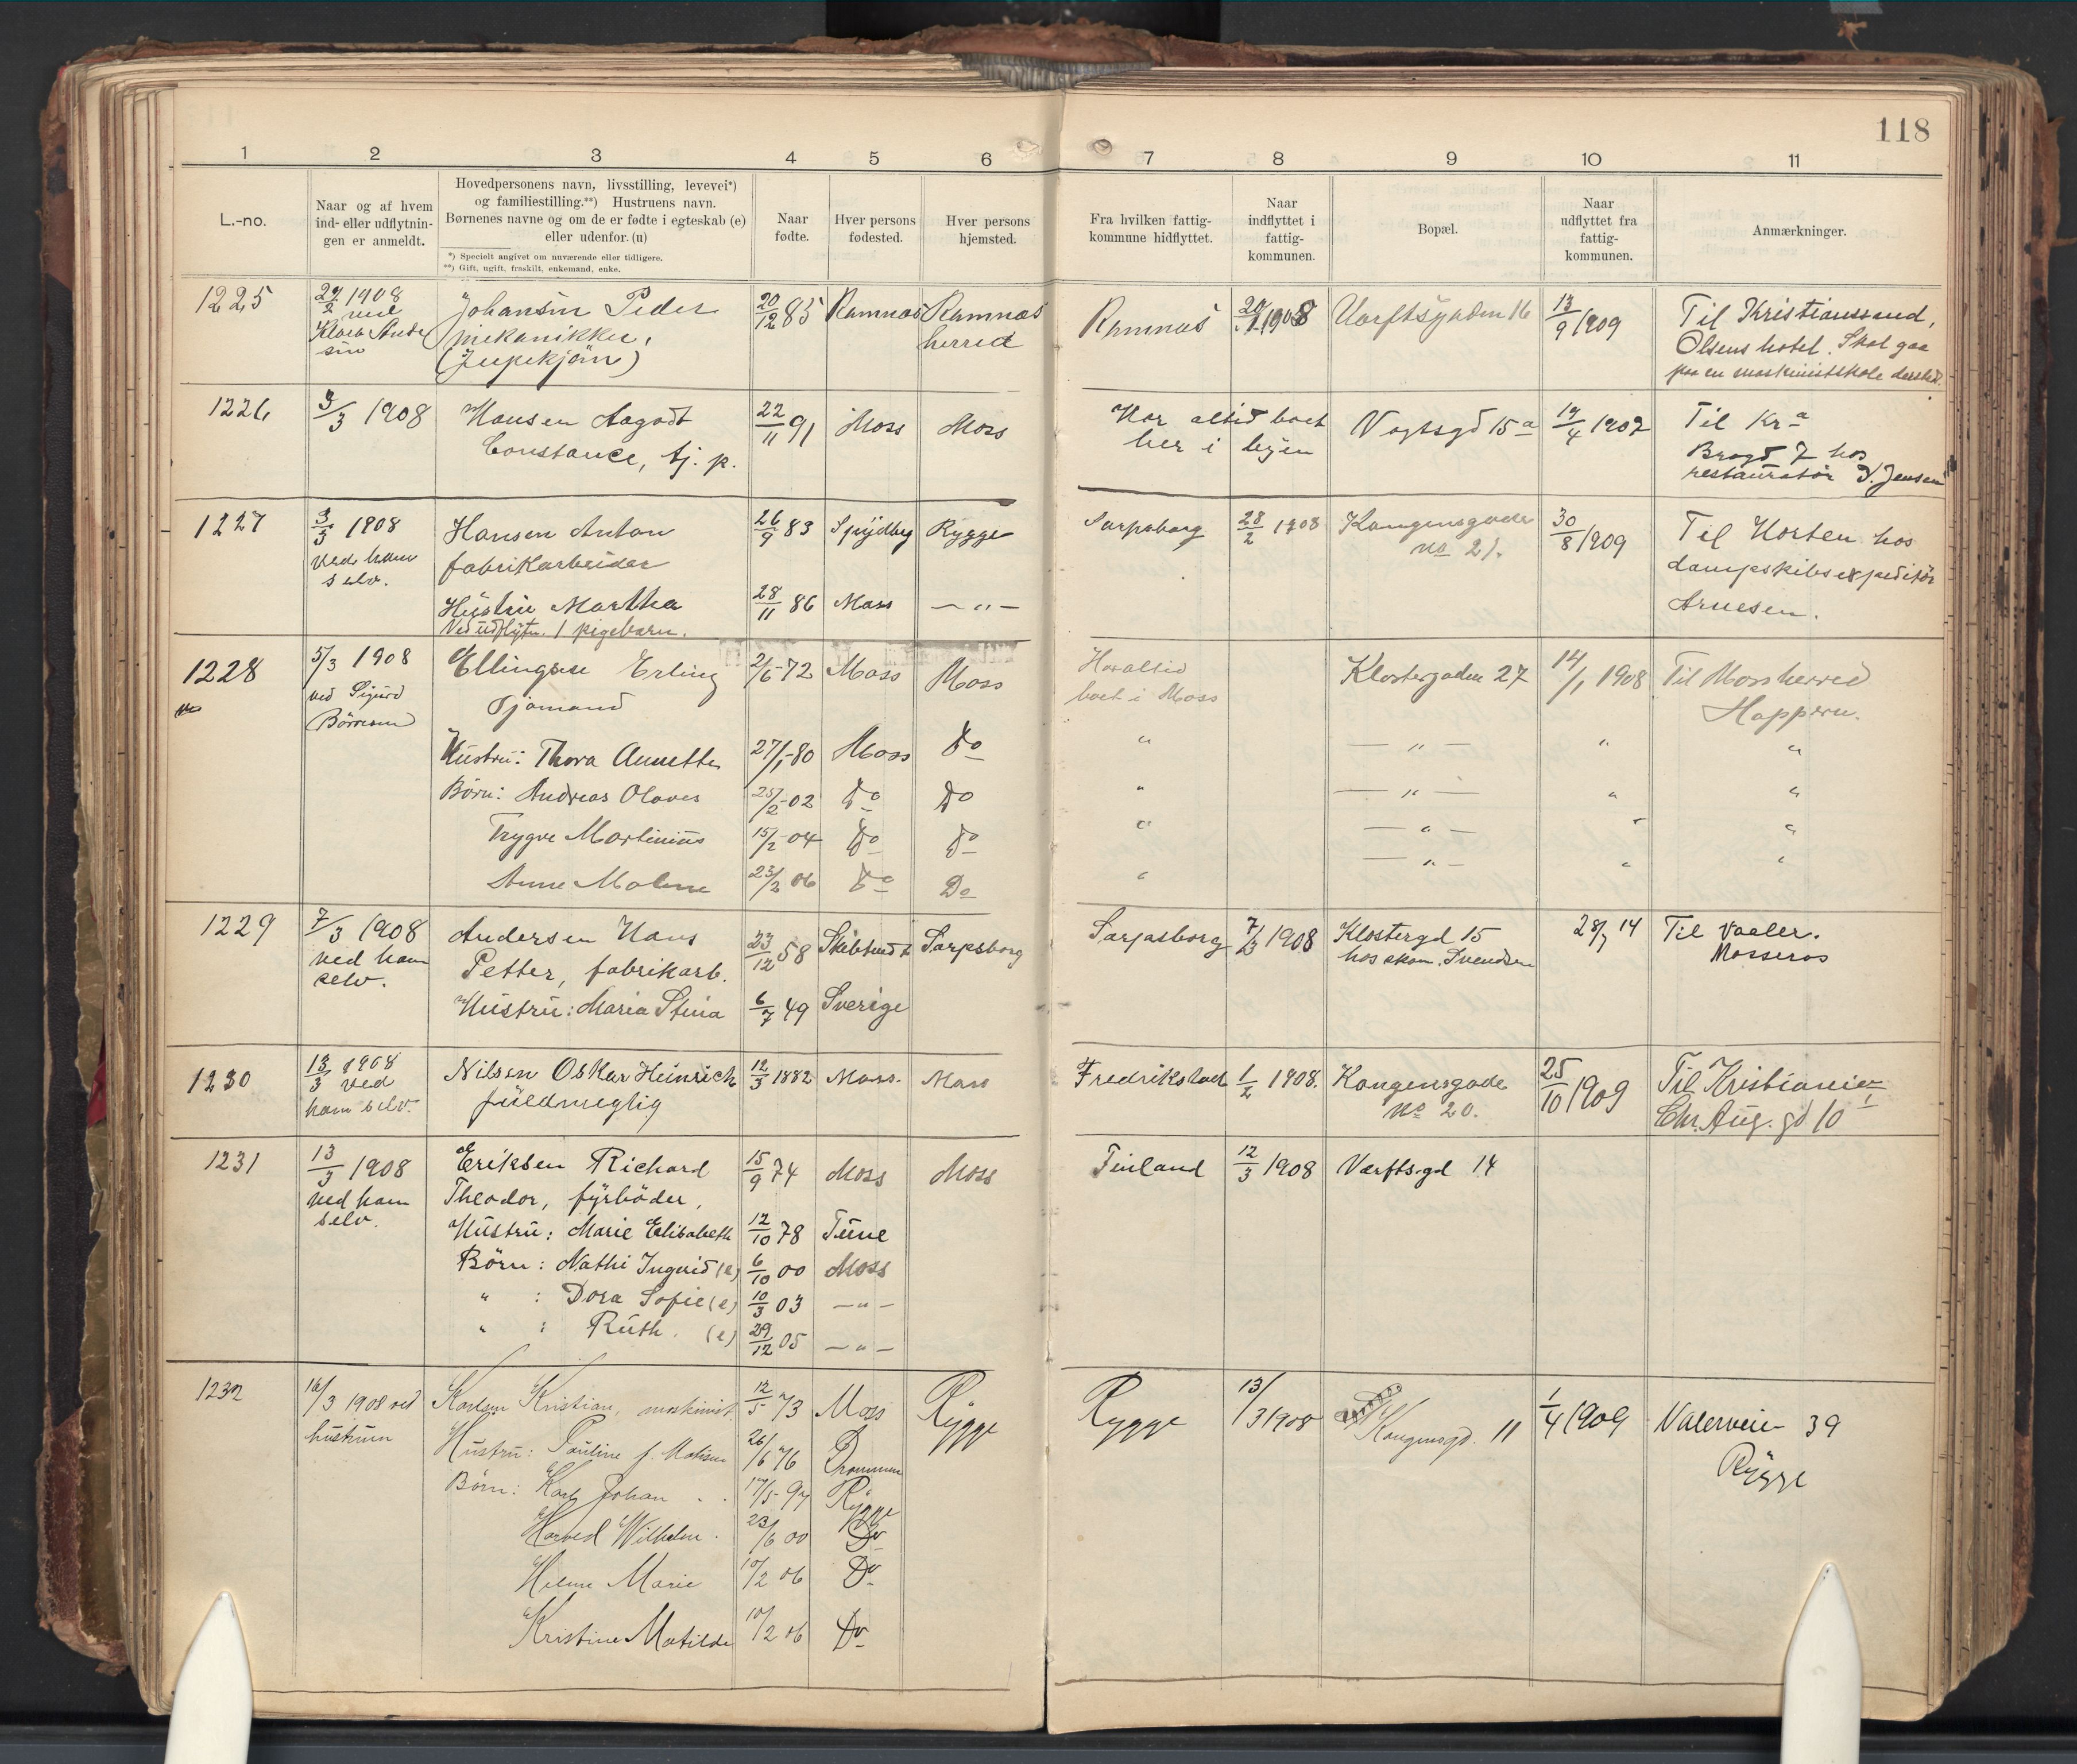 118
1 2 3 4 5 6 7 8 9 10 11
L.-no.
Naar og af hvem
ind- eller udflytnin-
gen er anmeldt.
Hovedpersonens navn, livsstilling, levevei*)
og familiestilling.**) Hustruens navn.
Børnenes navne og om de er fødte i egteskab (e)
eller udenfor. (u)
*) Specielt angivet om nuværende eller tidligere.
**) Gift, ugift, fraskilt, enkemand, enke.
Naar
fødte.
Hver persons
fødested.
Hver persons
hjemsted.
Fra hvilken fattig-
kommune hidflyttet.
Naar
indflyttet i
fattig-
kommunen.
Bopæl.
Naar
udflyttet fra
fattig-
kommunen.
Anmærkninger.
1225 1908 Johansen Peder 20/12 85 Ramnæs Ramnæs Ramnæs 1908 Værftsgaden 16 13/9 1909 Til Kristianssand,
ved mekanikker, herred Olsens hotel. Skal gaa
Klara Ander
sen paa en maskinistskole dersted.
1226 3/3 1908 Hansen Aagodt 22/11 91 Moss Moss Har altid boet Vogtsgd 15a 19/4 1902 Til Kra
Constance, tj. p. her i byen Bragd 7 hos
restauratør J. Jensen
1227 3/3 1908 Hansen Anton 26/9 83 Spydbg Rygge Sarpsborg 28/2 1908 Kongensgade 30/8 1909 Til Horten hos
ved ham fabrikarbeider no 21. dampskibsexpeditør
selv.
Hustru Martha 28/11 86 Moss — " — Arnesen.
Ved udflytn. 1 pigebarn.
1228 5/3 1908 Ellingsen Erling 2/6-72 Moss Moss Har altid Klostergaden 27 14/1 1908 Til Moss herred
ved Sigurd Sjømand boet i Moss Happern.
Børresen
Hustru: Thora Annette 27/1-80 Moss Do " — " — " "
Børn: Andreas Olaves 25/2-02 Do Do " — " — " "
Trygve Martinius 15/2-04 Do Do " — " — " "
Anne Malene 23/2 06 Do Do " — " — " "
1229 7/3 1908 Andersen Hans 23/12 58 Skibtvedt Sarpsborg Sarpsborg 7/3 1908 Klostergd 15 28/7 14 Til Vaaler.
ved ham Petter, fabrikarb. hos skom. Svendsen Mosseros
selv.
Hustru: Maria Stina 6/7 49 Sverige
1230 13/3 1908 Nilsen Oskar Heinrich 12/3 1882 Moss. Moss Fredrikstad 1/2 1908. Kongensgade 25/10 1909 Til Kristiania
ved fuldmægtig no 20. Chr. Aug. gd 10 I
ham selv.
1231 13/3 1908 Eriksen Richard 15/9 74 Moss Moss Finland 12/3 1908 Værftsgd 14
ved ham Theodor, fyrbøder,
selv.
Hustru: Marie Elisabeth 12/10 78 Tune
Børn: Nathi Ingrid (e) 6/10 00 Moss
" : Dora Sofie (e) 10/3 03 — " —
" : Ruth. (e) 29/12 05 — " —
1232 16/3 1908 ved Karlsen Kristian, maskinist 12/5 73 Moss Rygge Rygge 13/3 1908 Kongensgd. 11 1/4 1909 Valerveien 39
hustruen Rygge
Hustru: Pauline f. Madsen 26/6 76 Drammen
Børn: Karl Johan 17/5-97 Rygge
Harved Wilhelm. 23/6 00 Do
Helene Marie 10/2 06 Do
Kristine Matilde 10/2 06 Do